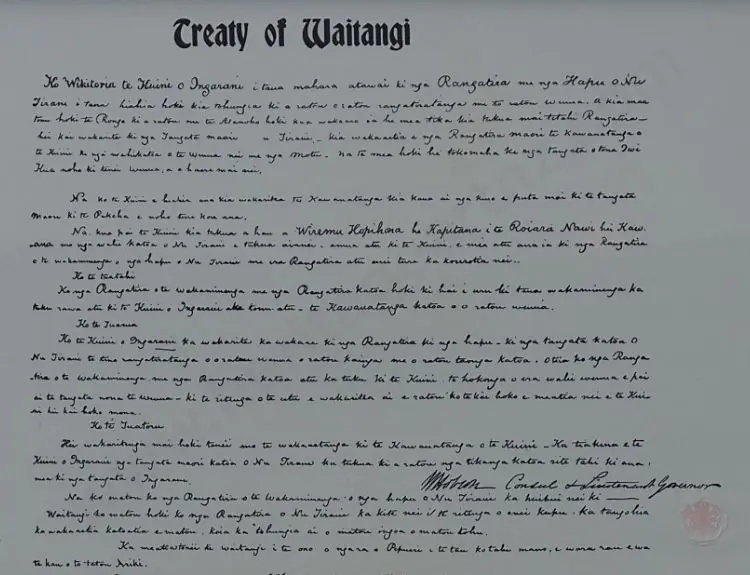 Treaty of Waitangi
Ko Wikitoria te Kuini o Ingarani i tana mahara atawai ki nga Rangatira me nga Hapu o Nu
Tirani i tana hiahia hoki kia tohungia ki a ratou o ratou rangatiratanga me to ratou wenua. A kia mau
tonu hoki te Rongo ki a ratou me te Atanoho hoki kua wakaaro ia he mea tika kia tukua mai tetahi Rangatira—
hei kai wakarite ki nga Tangata maori o Nu Tirani — kia wakaaetia e nga Rangatira maori te Kawanatanga o
te Kuini ki nga wahikatoa o te wenua nei me nga Motu — na te mea hoki he tokomaha ke nga tangata o tona Iwi
Kua noho ki tenei wenua, a e haere mai nei.
Na ko te Kuini e hiahia ana kia wakaritea te Kawanatanga kia kaua ai nga kino e puta mai ki te tangata
maori ki te Pakeha e noho ture kore ana.
Na, kua pai te Kuini kia tukua a hau a Wiremu Hopihona he Kapitana i te Roiara Nawi hei Kaw-
ana mo nga wahi katoa o Nu Tirani e tukua aianei, amua atu ki te Kuini, e mea atu ana ia ki nga Rangatira
o te wakaminenga o nga hapu o Nu Tirani me era Rangatira atu enei ture ka korerotia nei.
Ko te tuatahi
Ko nga Rangatira o te wakaminenga me nga Rangatira katoa hoki ki hai i uru ki taua wakaminenga ka
tuku rawa atu ki te Kuini o Ingarani ake tonu atu — te Kawanatanga katoa o o ratou wenua.
Ko te Tuarua
Ko te Kuini o Ingarani ka wakarite ka wakaae ki nga Rangatira ki nga hapu — ki nga tangata katoa o
Nu Tirani te tino rangatiratanga o o ratou wenua o ratou kainga me o ratou taonga katoa. Otiia ko nga Ranga-
tira o te wakaminenga me nga Rangatira katoa atu ka tuku ki te Kuini te hokonga o era wahi wenua e pai
ai te tangata nona te wenua — ki te ritenga o te utu e wakaritea ai e ratou ko te kai hoko e meatia nei e te Kui-
ni hei kai hoko mona.
Ko te Tuatoru
Hei wakaritenga mai hoki tenei mo te wakaaetanga ki te Kawanatanga o te Kuini — Ka tiakina e te
Kuini o Ingarani nga tangata maori katoa o Nu Tirani ka tukua ki a ratou nga tikanga katoa rite tahi ki ana
mea ki nga tangata o Ingarani.
W Hobson Consul & Lieutenant Governor
Na ko matou ko nga Rangatira o te Wakaminenga o nga hapu o Nu Tirani ka huihui nei ki
Waitangi ko matou hoki ko nga Rangatira o Nu Tirani ka kite nei i te ritenga o enei kupu. Ka tangohia
ka wakaaetia katoatia e matou, koia ka tohungia ai o matou ingoa o matou tohu.
Ka meatia tenei ki Waitangi i te ono o nga ra o Pepueri i te tau kotahi mano, e waru rau e wa
te kau o to tatou Ariki.